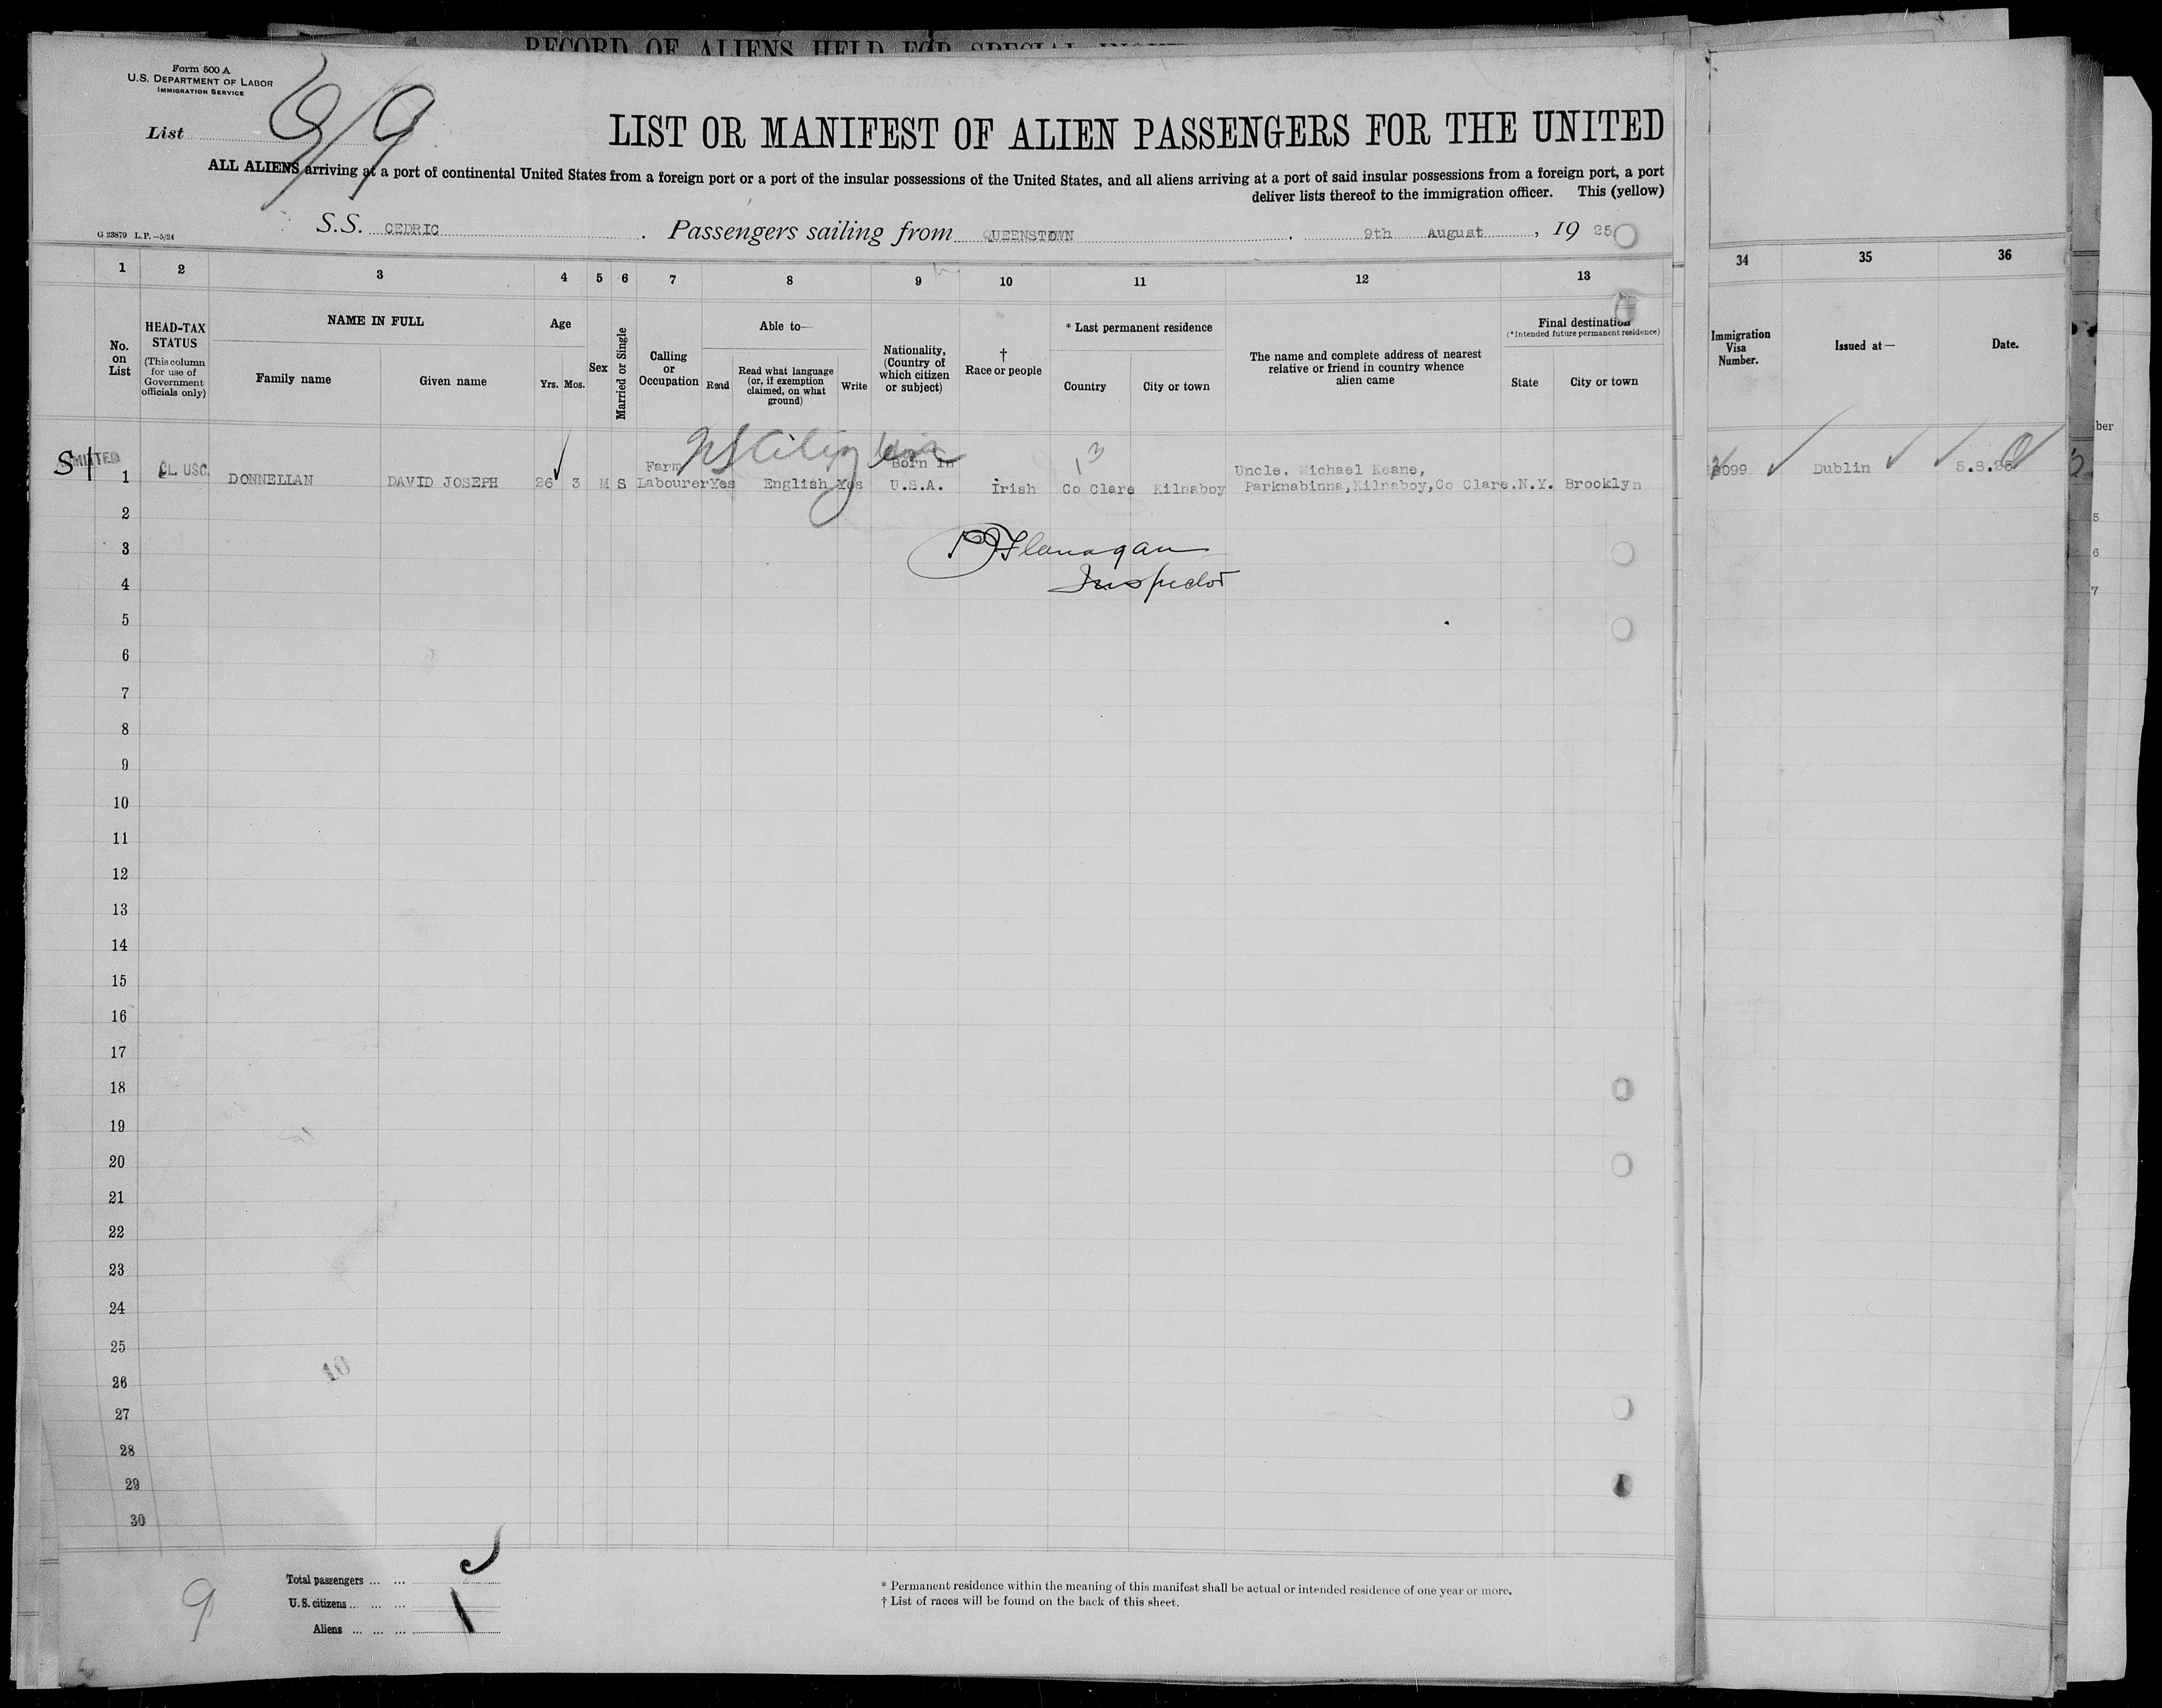 RECORD OF ALIENS HELD FOR SPECIAL
Form 500 A
U.S. DEPARTMENT OF LABOR
IMMIGRATION SERVICE
List
LIST OR MANIFEST OF ALIEN PASSENGERS FOR THE UNITED
ALL ALIENS arriving at a port of continental United States from a foreign port or a port of the insular possessions of the United States, and all aliens arriving at a port of said insular possessions from a foreign port, a port
deliver lists thereof to the immigration officer. This (yellow)
G 23879 L.P.—5/24
S.S. CEDRIC . Passengers sailing from QUEENSTOWN . 9th August , 19 25
1 2 3 4 5 6 7 8 9 10 11 12 13 34 35 36
No. on List
HEAD-TAX STATUS
(This column for use of Government officials only)
NAME IN FULL
Family name
Given name
Age
Yrs. Mos.
Sex
Married or Single
Calling or Occupation
Able to—
Read
Read what language (or, if exemption claimed, on what ground)
Write
Nationality, (Country of which citizen or subject)
† Race or people
* Last permanent residence
Country
City or town
The name and complete address of nearest relative or friend in country whence alien came
Final destination
(*Intended future permanent residence)
State
City or town
Immigration Visa Number.
Issued at—
Date.
ber
Farm Born in Uncle. Michael Keane,
1 CL. USC. DONNELLAN DAVID JOSEPH 26 3 M S Labourer Yes English Yes U.S.A. Irish Co Clare Kilnaboy Parknabinna, Kilnaboy, Co Clare. N.Y. Brooklyn 099 Dublin
2
3
Flanagan
4
Inspector
5
6
7
8
9
10
11
12
13
14
15
16
17
18
19
20
21
22
23
24
25
10
26
27
28
29
30
9
Total passengers ... ...
U.S. citizens ... ... ...
Aliens ... ... ...
* Permanent residence within the meaning of this manifest shall be actual or intended residence of one year or more.
† List of races will be found on the back of this sheet.
5
6
7